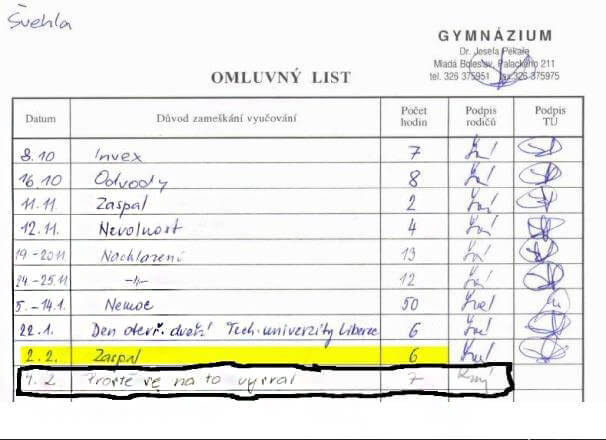 Švehla
GYMNÁZIUM
Dr. Josefa Pekaře
Mladá Boleslav, Palackého 211
tel. 326 375951 fax 326 375975
OMLUVNÝ LIST
Datum Důvod zameškání vyučování Počet hodin Podpis rodičů Podpis TU
8.10 Invex 7
16.10 Odvody 8
11.11. Zaspal 2
12.11. Nevolnost 4
19-20.11. Nachlazení 13
24-25.11 -"- 12
5.-14.1. Nemoc 50
22.1. Den otevř. dveří Tech. univerzity Liberec 6
2.2. Zaspal 6
4.2 Prostě se na to vysral 7